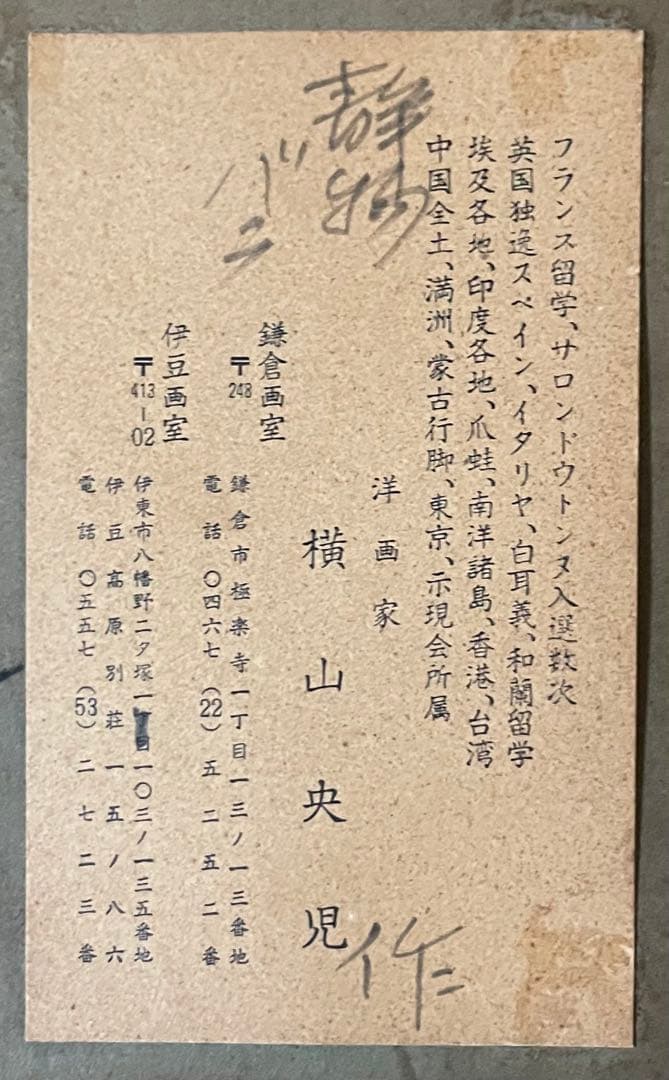 静物
バニ
フランス留学、サロンドウトンヌ入選数次
英国独逸スペイン、イタリヤ、白耳義、和蘭留学
埃及各地、印度各地、爪蛙、南洋諸島、香港、台湾
中国全土、満洲、蒙古行脚、東京、示現会所属
洋画家
横山央児
作
鎌倉画室
〒248
鎌倉市極楽寺一丁目一三ノ一三番地
電話 〇四六七 (22) 五二五二番
伊豆画室
〒413-02
伊東市八幡野二夕塚一〇三ノ一三五番地
伊豆高原別荘一五ノ八六
電話 〇五五七 (53) 二七二三番